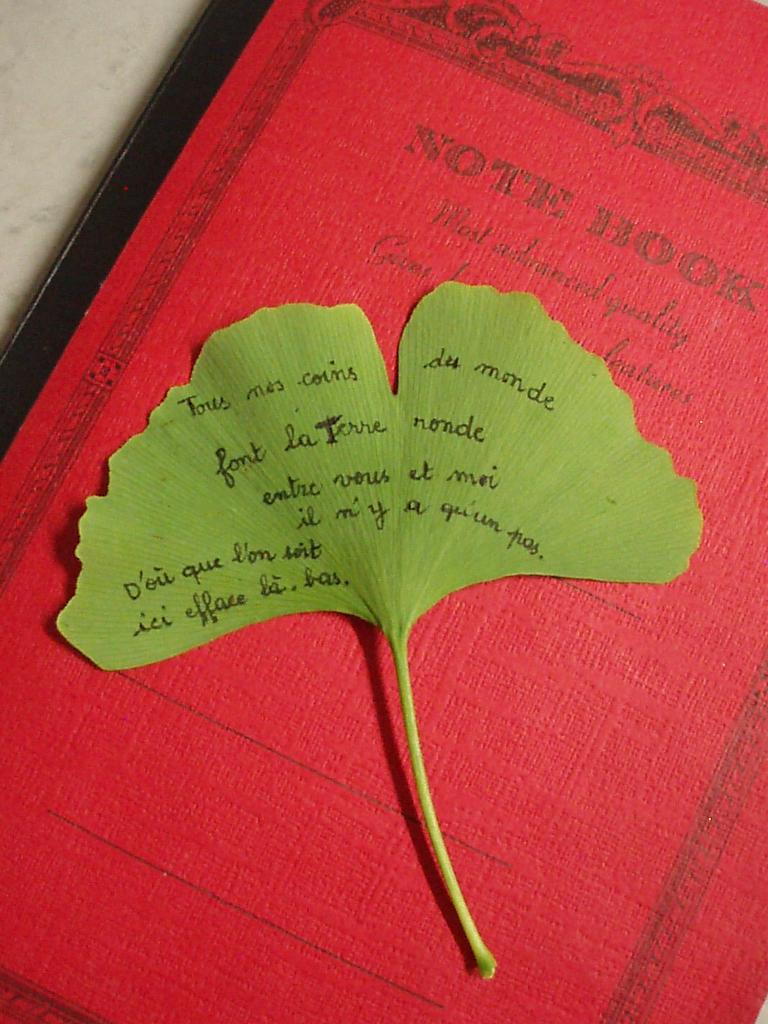 NOTE BOOK
Most advanced quality
Gives
features
Tous nos coins du monde
font la Terre ronde
entre vous et moi
il n'y a qu'un pas.
D'où que l'on soit
ici efface là-bas.